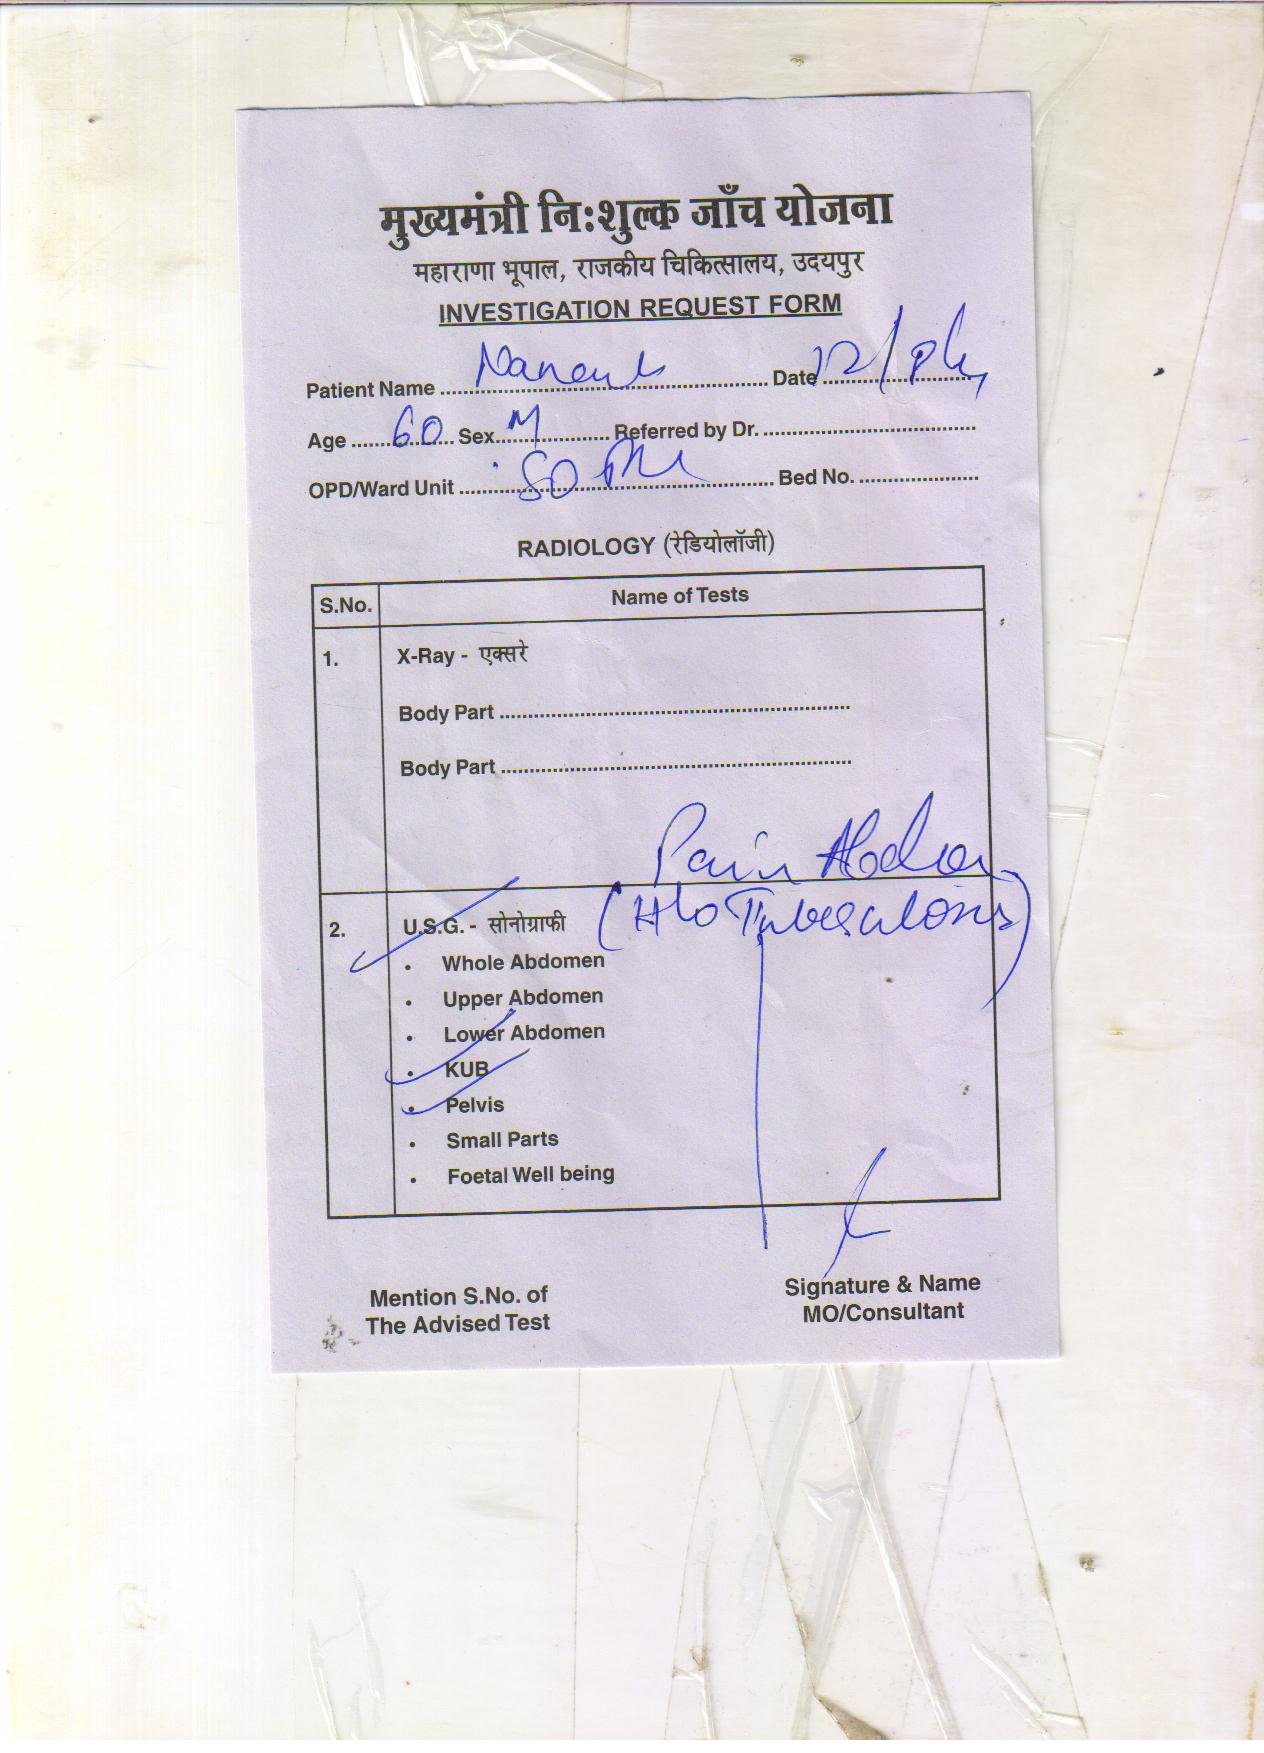 मुख्यमंत्री नि:शुल्क जाँच योजना
महाराणा भूपाल, राजकीय चिकित्सालय, उदयपुर
INVESTIGATION REQUEST FORM
Patient Name ........ Date 12/
Age 60 Sex M Referred by Dr. ........
OPD/Ward Unit ........ Bed No. ........
RADIOLOGY (रेडियोलॉजी)
S.No. Name of Tests
1. X-Ray - एक्सरे
Body Part ........
Body Part ........
Pain
2. U.S.G. - सोनोग्राफी (H/o
• Whole Abdomen
• Upper Abdomen
• Lower Abdomen
• KUB
• Pelvis
• Small Parts
• Foetal Well being
Mention S.No. of
The Advised Test
Signature & Name
MO/Consultant